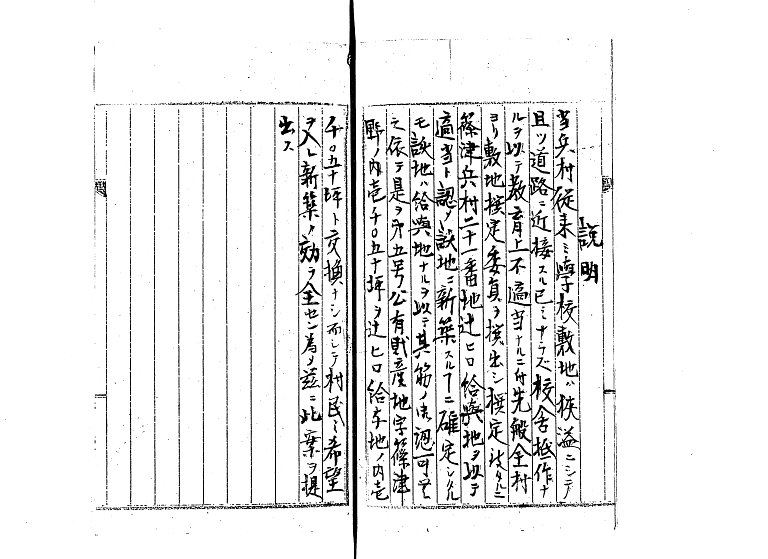 説明
当兵村従来ミ學校敷地ハ狭溢ニシテ
且ツ道路ニ近接スル已ミナラズ校舎抵作ナ
ルヲ以テ教育上不適当ナルニ付先般全村
ヨリ敷地撰定委員ヲ撰出シ撰定
篠津兵村二十一番地辻ヒロ給與地ヲ以テ
適当ト認メ該地ニ新築スル ニ確定シタル
モ該地ハ給與地ナルヲ以テ其筋ノ 認可
之依テ是ヲ第五号公有財産地字篠津
野ノ内壱千〇五十坪ヲ辻ヒロ給与地ノ内壱
千〇五十坪ト交換ナシ而シテ村民ミ希望
ヲ入レ新築ノ効ヲ全セン為メ茲ニ此案ヲ提
出ス